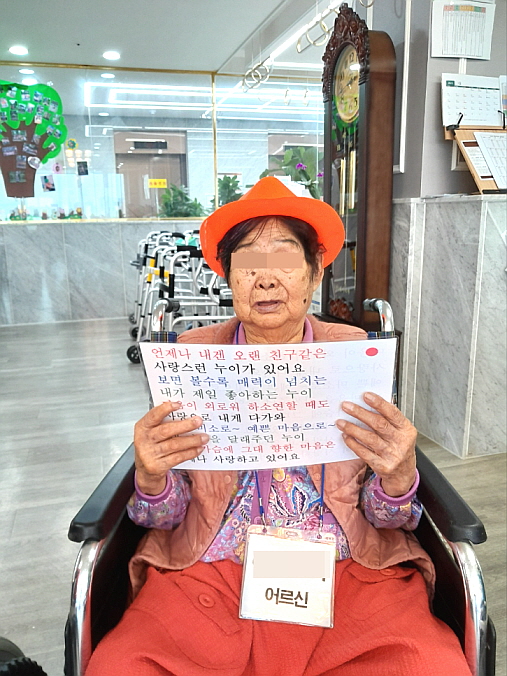 언제나 내겐 오랜 친구같은
사랑스런 누이가 있어요
보면 볼수록 매력이 넘치는
내가 제일 좋아하는 누이
외로워 하소연할 때도
내게 다가와
예쁜 마음으로~
달래주던 누이
그대 향한 마음은
사랑하고 있어요
어르신